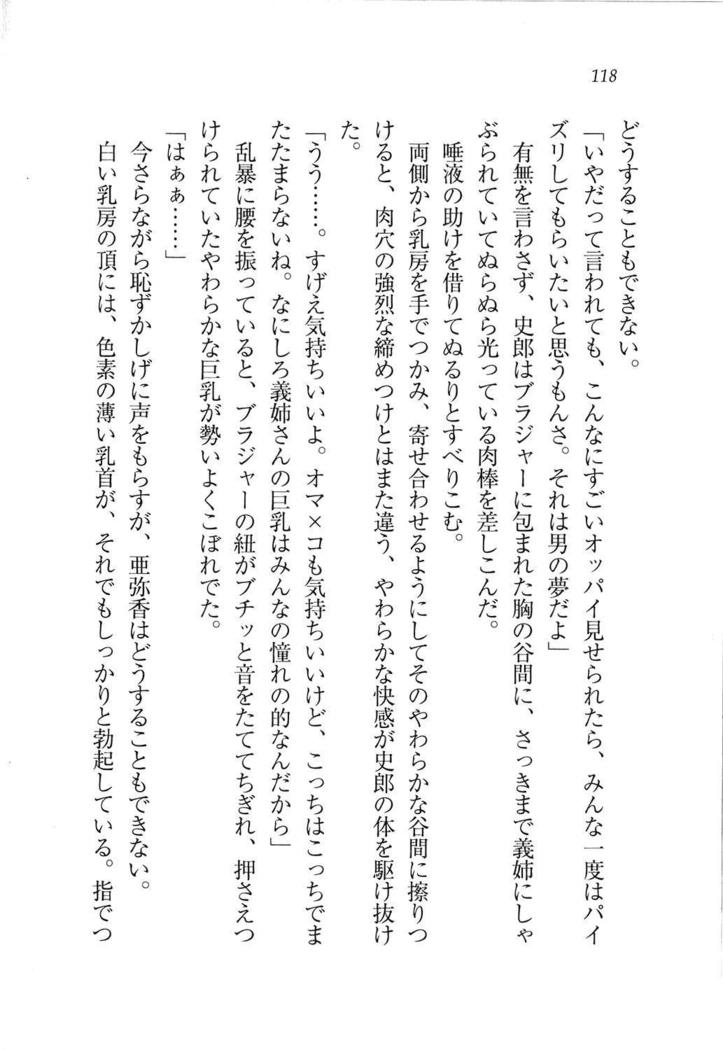 118
どうすることもできない。
「いやだって言われても、こんなにすごいオッパイ見せられたら、みんな一度はパイ
ズリしてもらいたいと思うもんさ。それは男の夢だよ」
有無を言わさず、史郎はブラジャーに包まれた胸の谷間に、さっきまで義姉にしゃ
ぶられていてぬらぬら光っている肉棒を差しこんだ。
唾液の助けを借りてぬるりとすべりこむ。
両側から乳房を手でつかみ、寄せ合わせるようにしてそのやわらかな谷間に擦りつ
けると、肉穴の強烈な締めつけとはまた違う、やわらかな快感が史郎の体を駆け抜け
た。
「うう……。すげえ気持ちいいよ。オマ×コも気持ちいいけど、こっちはこっちでま
たたまらないね。なにしろ義姉さんの巨乳はみんなの憧れの的なんだから」
乱暴に腰を振っていると、ブラジャーの紐がブチッと音をたててちぎれ、押さえつ
けられていたやわらかな巨乳が勢いよくこぼれでた。
「はぁぁ……」
今さらながら恥ずかしげに声をもらすが、亜弥香はどうすることもできない。
白い乳房の頂には、色素の薄い乳首が、それでもしっかりと勃起している。指でつ